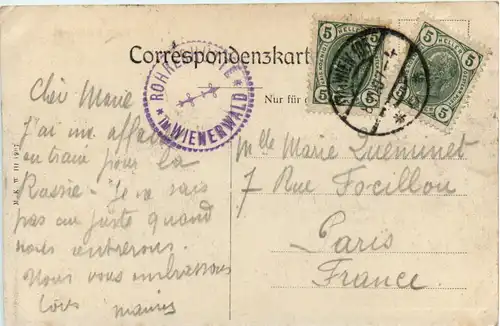 Correspondenzkart
Nur für
ROHR
IM WIENERWALD
5 5
HELLER
5 5
Cher Marie
J'ai une affaire
en train pour la
Russie - Je ne sais
pas au juste quand
nous rentrerons.
Nous vous embrassons
tous
Mlle Marie Queminet
7 Rue Focillon
Paris
France.